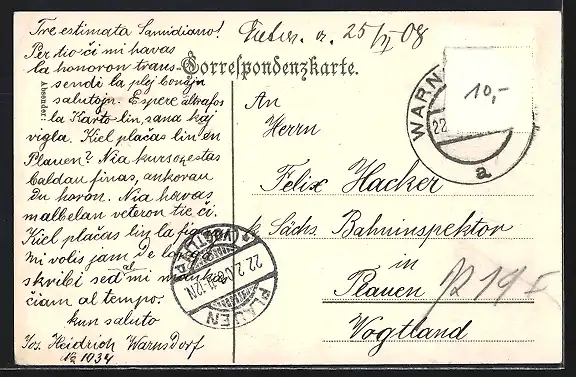 Tre estimata Samidiano!
Per tio ĉi mi havas
la honoron trans-
sendi la plej bonajn
salutojn. Espere altrafos
la Karto lin, sana kaj
vigla. Kiel plaĉas lin en
Plauen? Nia kurso, estas
baldau finas, ankorau
du horon. Nia havas
malbelan veteron tie ĉi.
Kiel plaĉas lin la
Mi volis jam de la
skribi sed al mi
ĉiam al tempo.
kun saluto
Jos. Heidrich Warnsdorf
No 1034
25/II 08
Correspondenzkarte.
Absender:
An
Herrn
Felix Hacker
k. Sächs. Bahninspektor
in
Plauen
Vogtland
WARN
22
a
10,-
PLAUEN
(VOGTL.)
22.2.08